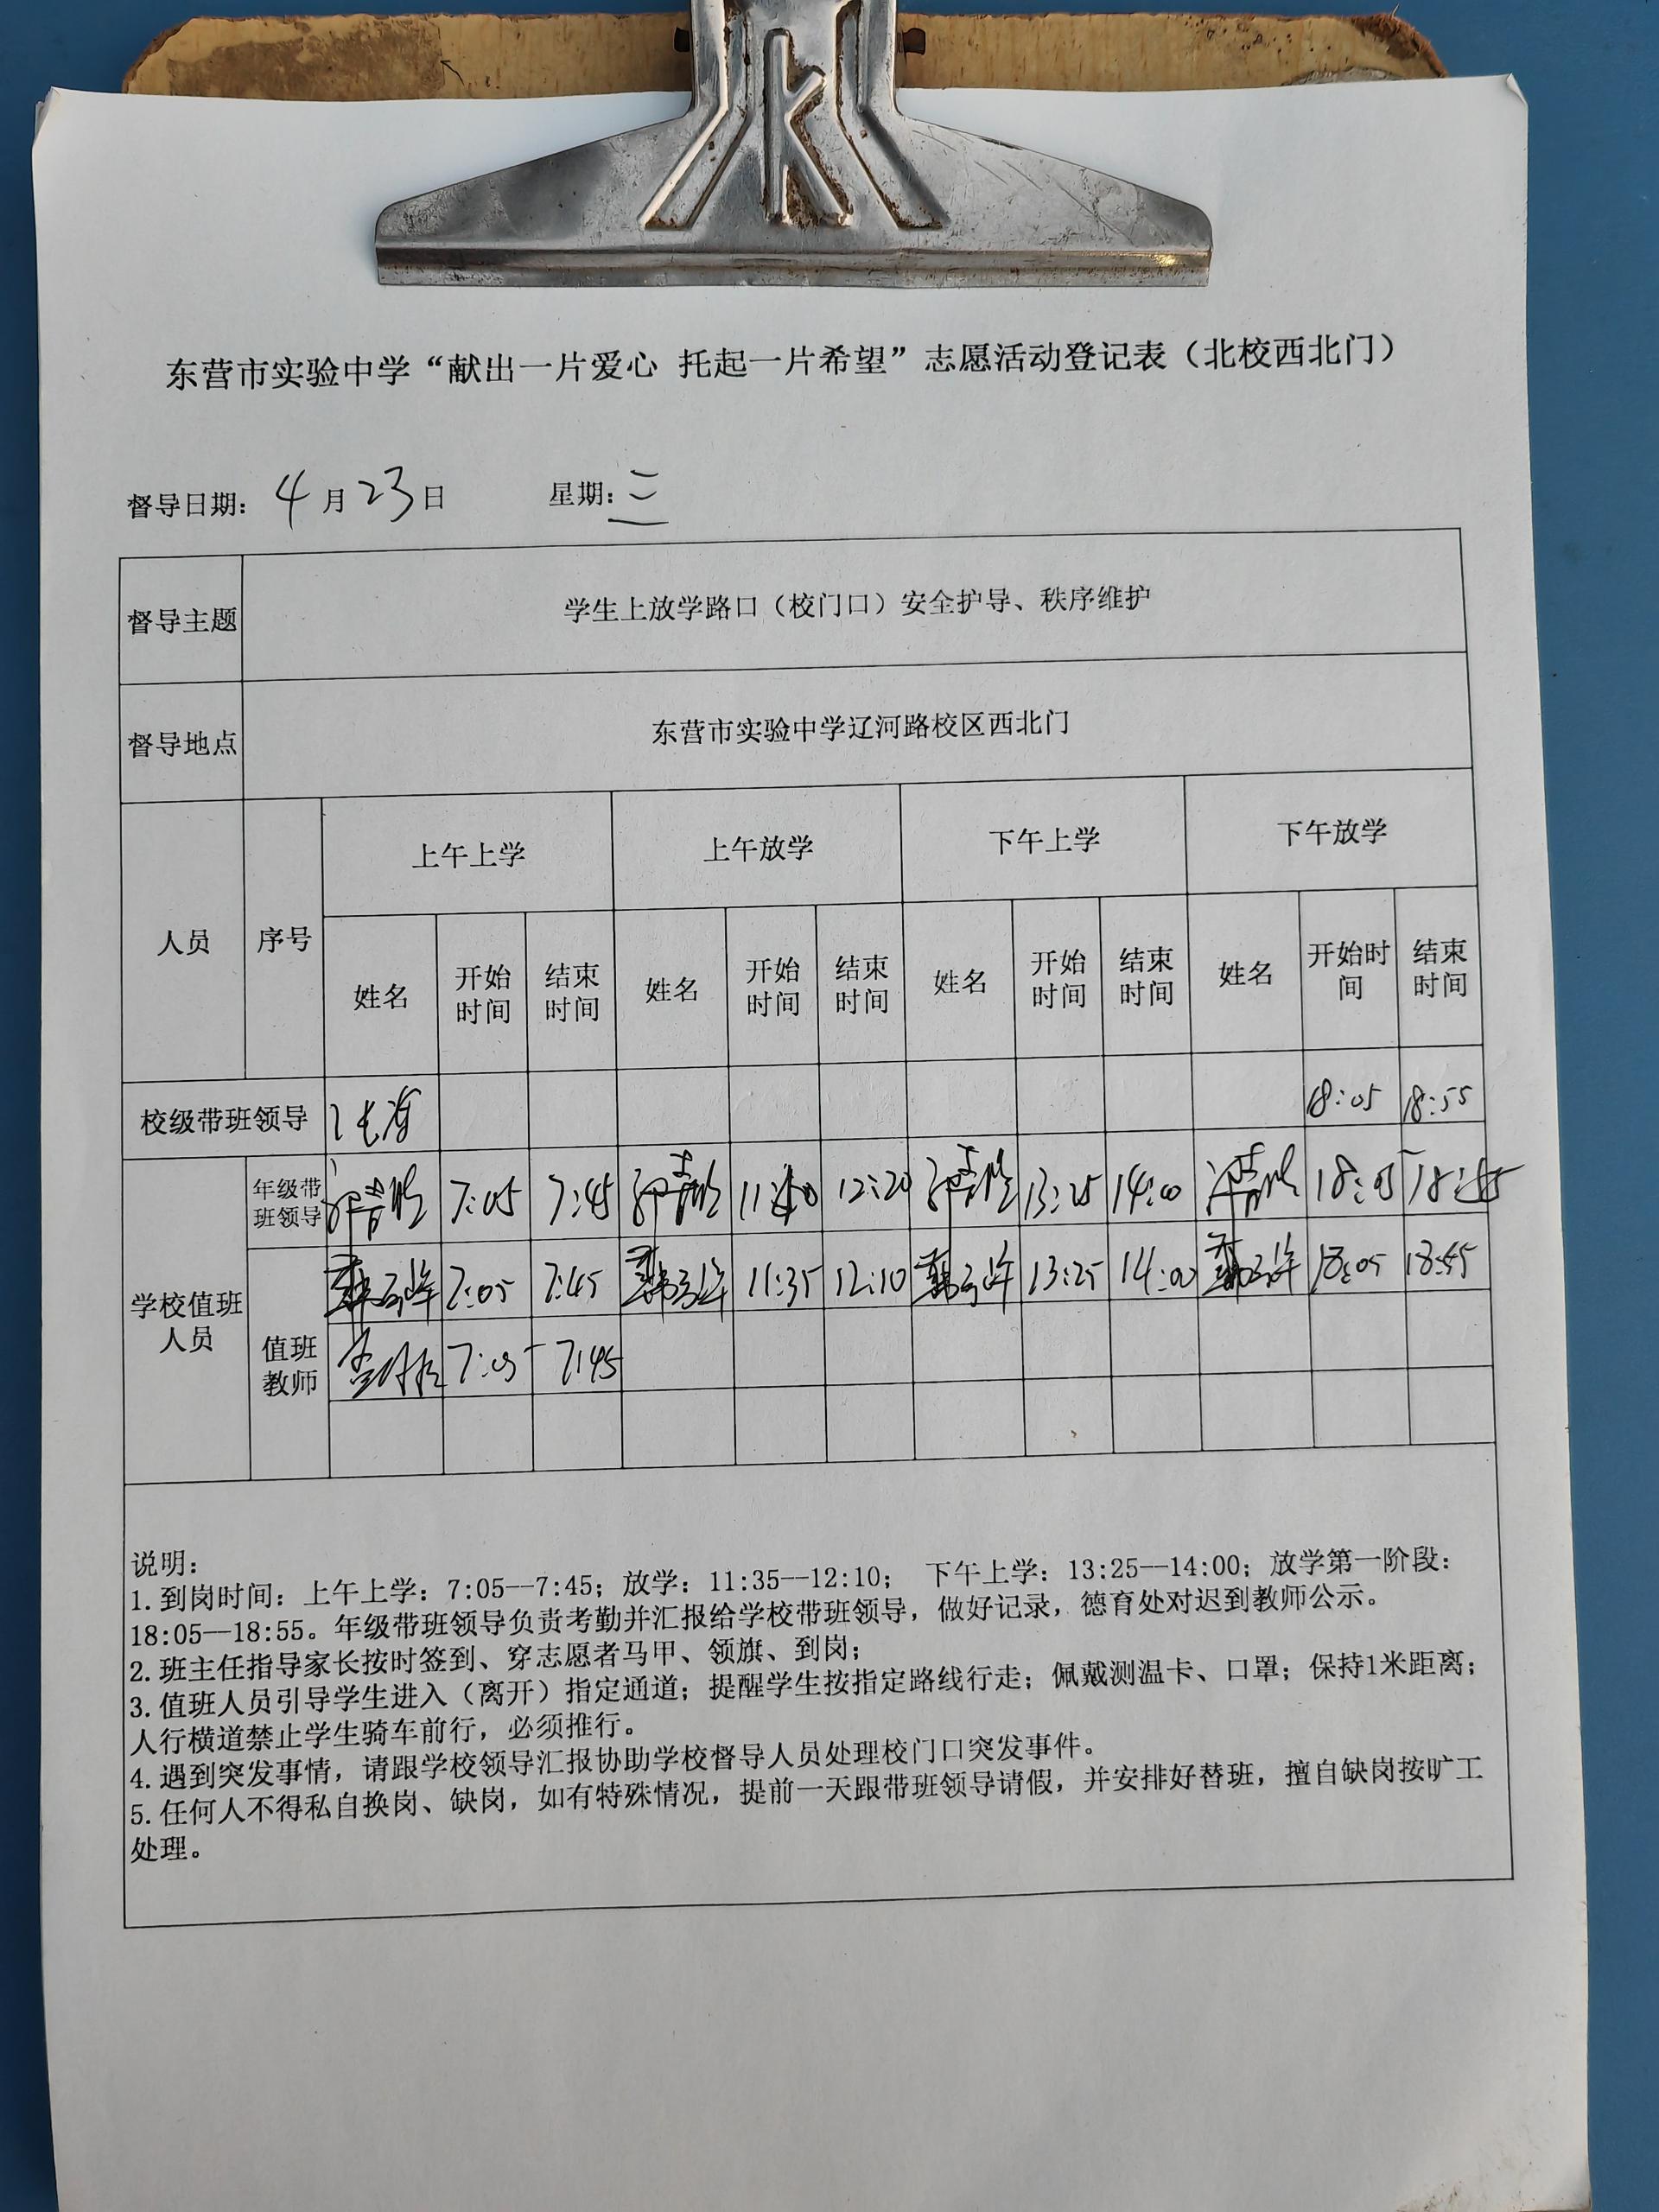 东营市实验中学“献出一片爱心 托起一片希望”志愿活动登记表（北校西北门）
督导日期：4月23日 星期：三
督导主题 学生上放学路口（校门口）安全护导、秩序维护
督导地点 东营市实验中学辽河路校区西北门
人员 序号 上午上学 上午放学 下午上学 下午放学
姓名 开始时间 结束时间 姓名 开始时间 结束时间 姓名 开始时间 结束时间 姓名 开始时间 结束时间
校级带班领导 18:05 18:55
学校值班人员
年级带班领导 7:05 7:45 12:20 13:25 14:00 18:05
值班教师
7:05 7:45 11:35 12:10 13:25 14:00 18:05 18:55
7:05 7:45
说明：
1.到岗时间：上午上学：7:05—7:45；放学：11:35—12:10； 下午上学：13:25—14:00；放学第一阶段：
18:05—18:55。年级带班领导负责考勤并汇报给学校带班领导，做好记录，德育处对迟到教师公示。
2.班主任指导家长按时签到、穿志愿者马甲、领旗、到岗；
3.值班人员引导学生进入（离开）指定通道；提醒学生按指定路线行走；佩戴测温卡、口罩；保持1米距离；
人行横道禁止学生骑车前行，必须推行。
4.遇到突发事情，请跟学校领导汇报协助学校督导人员处理校门口突发事件。
5.任何人不得私自换岗、缺岗，如有特殊情况，提前一天跟带班领导请假，并安排好替班，擅自缺岗按旷工
处理。